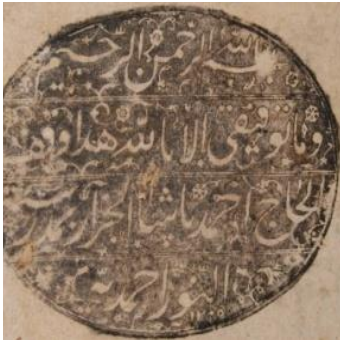 بسم الله الرحمن الرحيم
وما توفيقي الا بالله هذا وقف
الحاج احمد باشا الجزار بمدرسته
النور احمدية